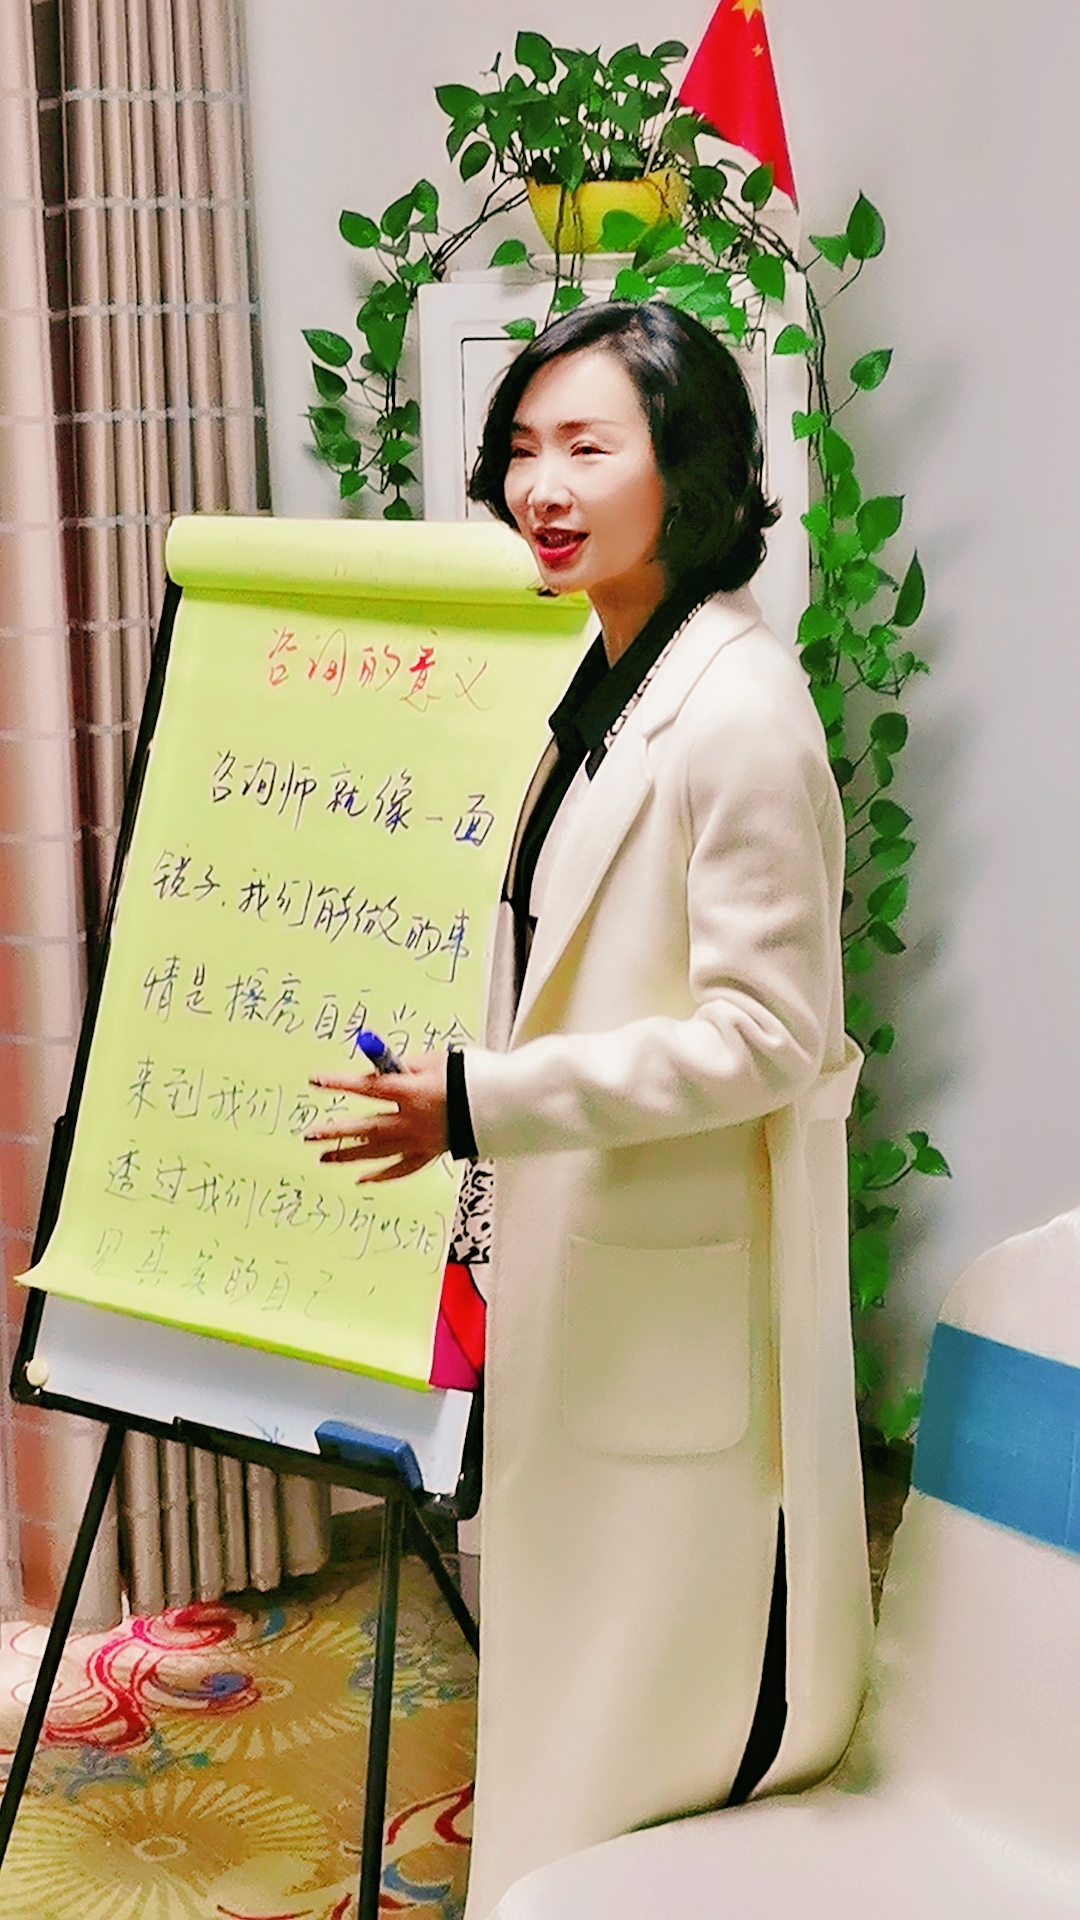 咨询的意义
咨询师就像一面
镜子,我们能做的事
情是擦亮自身当
来到我们面前
透过我们(镜子)可以
见真实的自己!